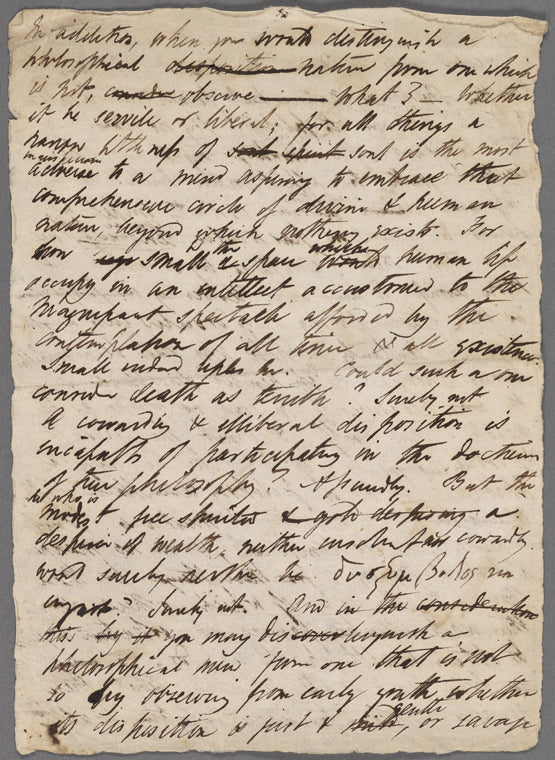 In addition, when you would distinguish a
philosophical disposition nature from one which
is not, consider observe — What? — Whether
it be servile or liberal; for all things a
narrow littleness of soul spirit soul is the most
in aspiring
adverse to a mind aspiring to embrace that
comprehensive circle of divine & human
nature, beyond which nothing exists. For
how small a the space which would human life
occupy in an intellect accustomed to the
magnificent spectacle afforded by the
contemplation of all time & all existence.
Small indeed replies he. Could such a one
consider death as terrible? Surely not
A cowardly & illiberal disposition is
incapable of participating in the doctrines
of true philosophy? Assuredly. But the
he who is
modest free spirited & gold despising a
despiser of wealth, neither insolent nor cowardly
would surely neither be
unjust? Surely not. And in the consideration
this by it you may discover distinguish a
philosophical mind from one that is not
so by observing from early youth whether
its disposition is just & mild gentle, or savage